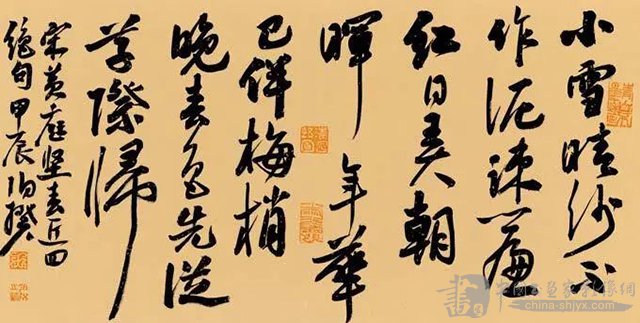 小雪晴沙不
作泥疎簾
紅日弄朝
暉 年華
已伴梅梢
晚春色先從
草際歸
宋黃庭堅春近四
絕句 甲辰
china-shjyx.com